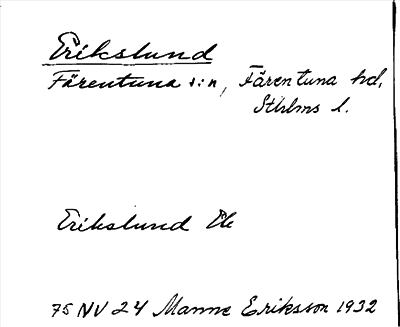 Erikslund
Färentuna s:n, Färentuna hd,
Sthlms l.
Erikslund Ek
75 NV 24 Manne Eriksson 1932